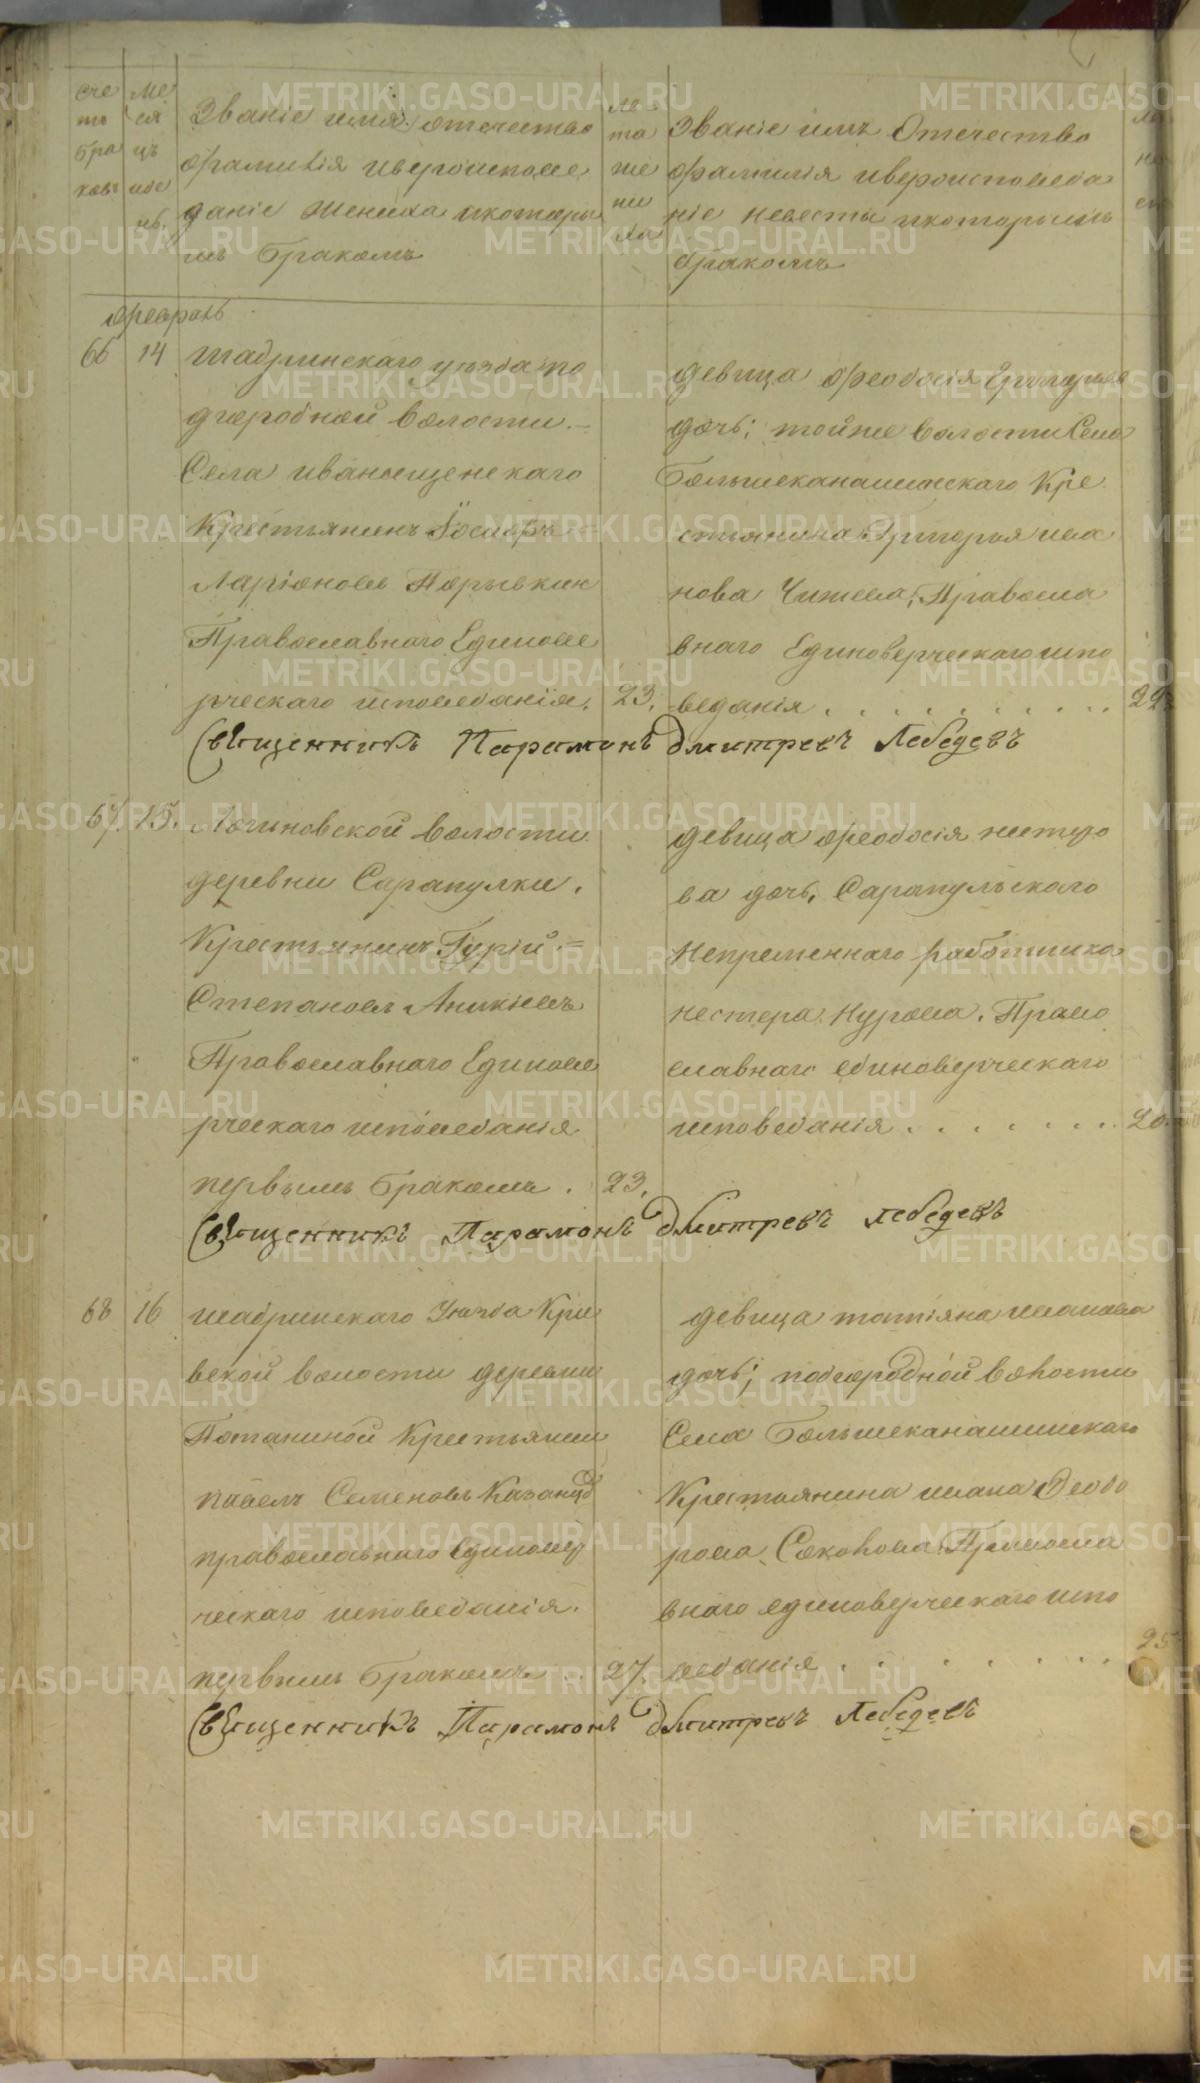 Счетъ браковъ
Месяцъ и день
Званіе имя, отечество
фамилія и вероиспове
даніе жениха и которы
мъ бракомъ
лета жениха
Званіе имя Отечество
фамилія и вероисповеда
ніе невесты и которымъ
бракомъ
февраль
66 14 Шадринскаго уезда по
дгеродной волости.
Села иванищенскаго
Крестьянинъ Iосифъ
Ларіоновъ Порывкин
Православнаго Единове
рческаго исповеданія. 23.
девица феодосія Григорьева
дочь; тойже волости Села
Большеканашинскаго Кре
стьянина Григорья ива
нова Чижева, Правосла
внаго Единоверческаго испо
веданія . . . . . . . . . . 22.
Священникъ Парамонъ дмитревъ Лебедевъ
67. 15. Логиновской волости
деревни Сарапулки,
Крестьянинъ Гурій
Степановъ Аникіевъ
Православнаго Единове
рческаго исповеданія
первымъ бракомъ . 23.
девица феодосія нестеро
ва дочь, Сарапульскаго
Непременнаго работника
нестера Нурова. Право
славнаго единоверческаго
исповеданія . . . . . . . 20.
Священникъ Парамонъ дмитревъ лебедевъ
68 16 шадринскаго Уезда Кри
вской волости деревни
Потаниной Крестьянин
павелъ Семеновъ Казанцов
православнаго Единовер
ческаго исповеданія.
первымъ бракомъ . . 27.
девица татіяна иванова
дочь; подгородной волости
Села Большеканашинскаго
Крестьянина ивана Феодо
рова Соколова Правосла
внаго единоверческаго испо
веданія . . . . . . . . 25
Священникъ Парамонъ дмитревъ Лебедевъ
METRIKI.GASO-URAL.RU